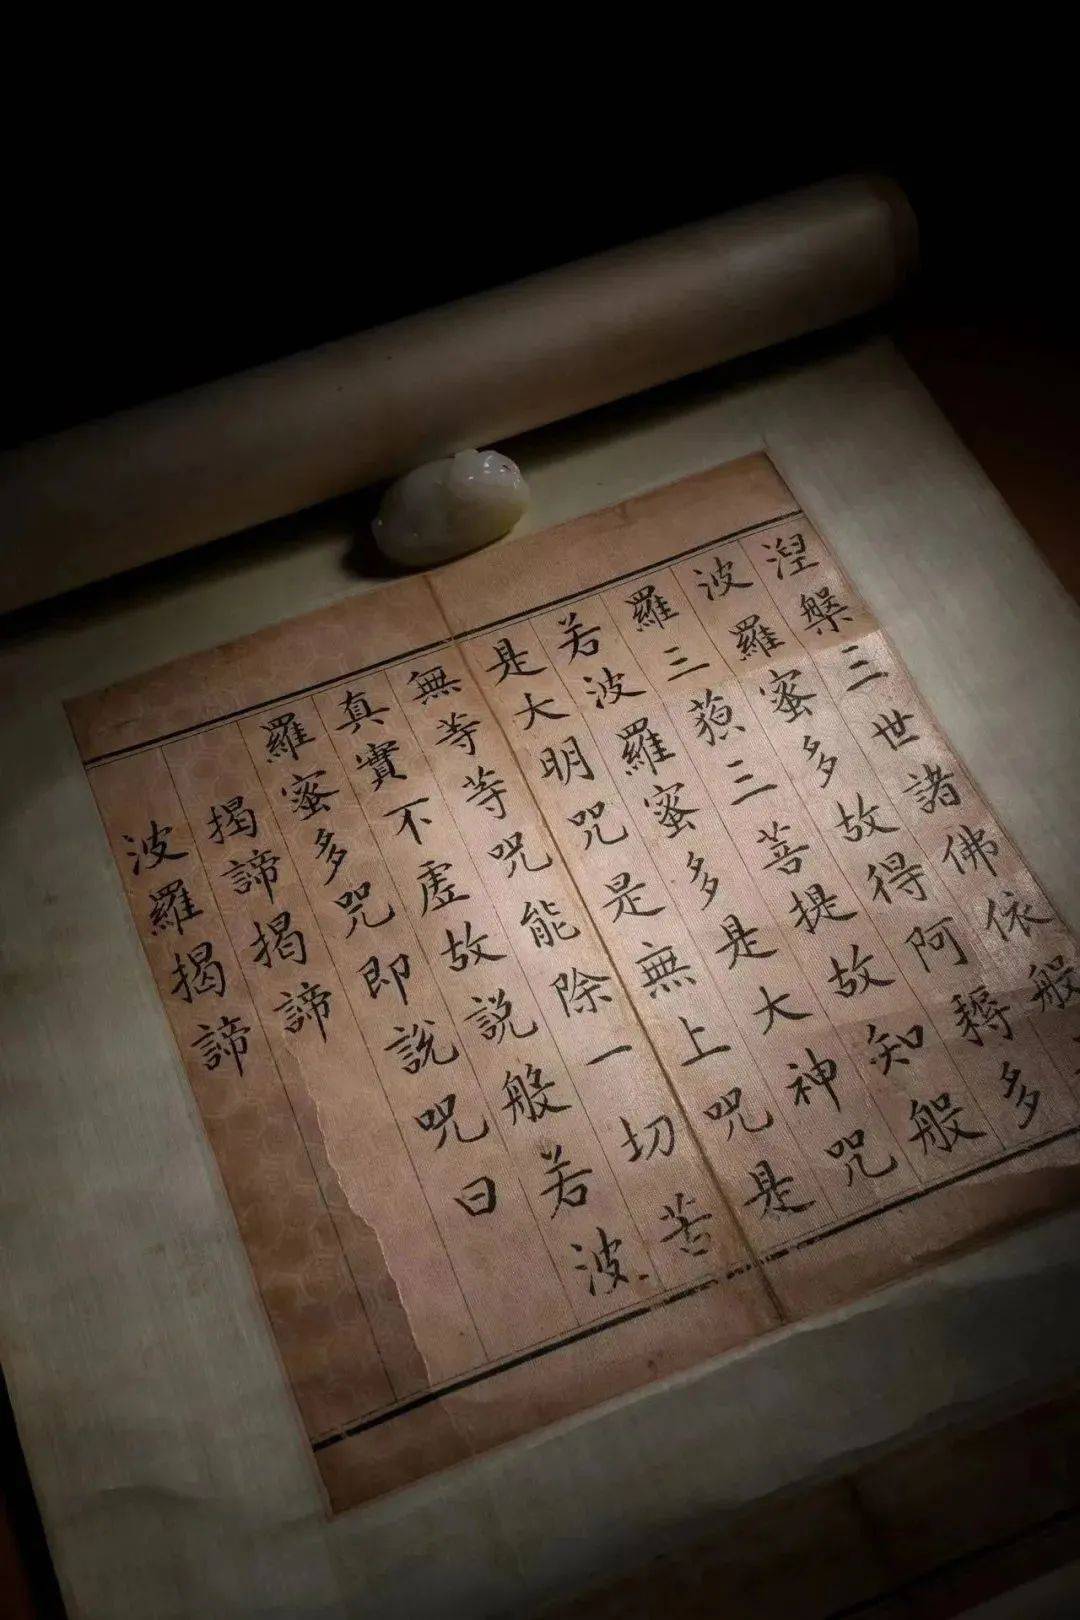 涅槃三世諸佛依般
波羅蜜多故得阿耨多
羅三藐三菩提故知般
若波羅蜜多是大神咒
是大明咒是無上咒是
無等等咒能除一切苦
真實不虛故說般若波
羅蜜多咒即說咒曰
揭諦揭諦
波羅揭諦